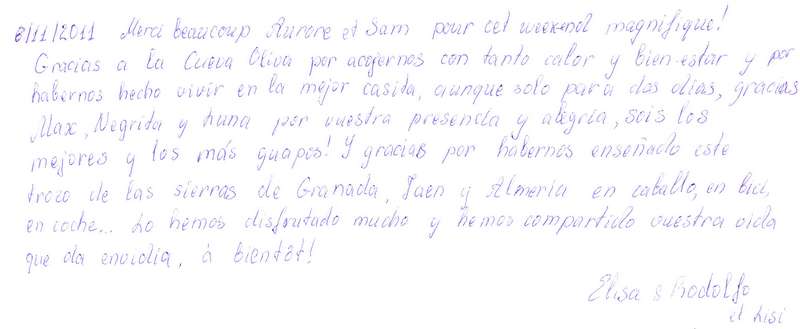 8/11/2011 Merci beaucoup Aurore et Sam pour cet weekend magnifique!
Gracias a la Cueva Oliva por acojernos con tanto calor y bien-estar y por
habernos hecho vivir en la mejor casita, aunque solo para dos dias, gracias
Max, Negrita y Luna por vuestra presencia y alegria, sois los
mejores y los más guapos! Y gracias por habernos enseñado este
trozo de las sierras de Granada, Jaen y Almeria en caballo, en bici,
en coche... Lo hemos disfrutado mucho y hemos compartido vuestra vida
que da envidia, à bientôt!
Elisa & Rodolfo